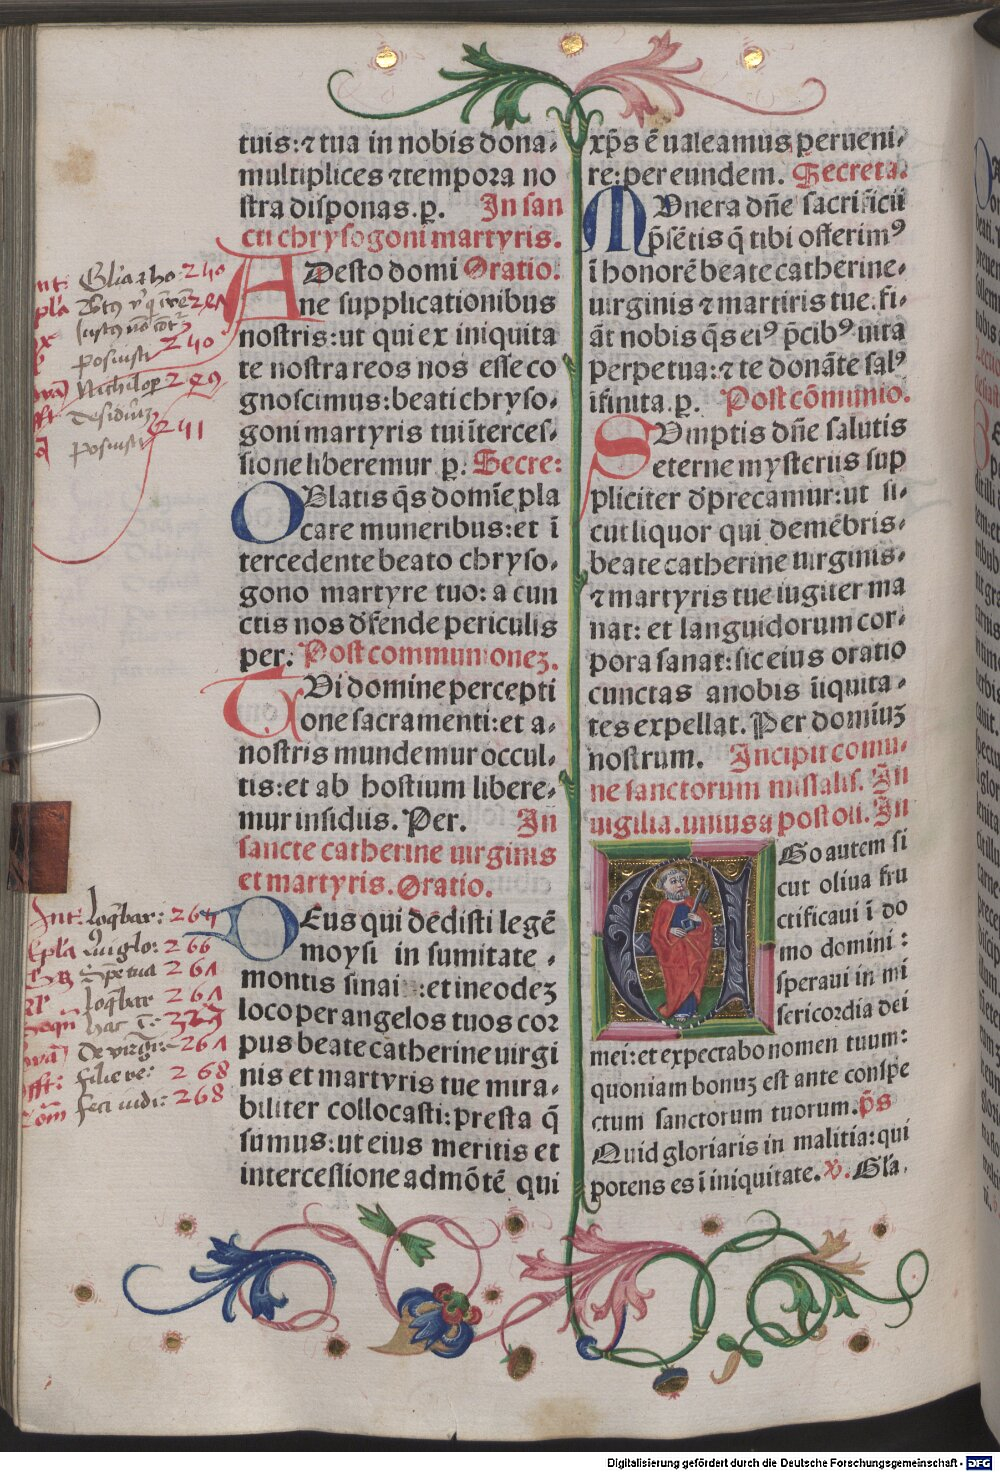 tuis: ⁊ tua in nobis dona⸗
multiplices ⁊ tempora no
stra disponas. p̱. In san
cti chrysogoni martyris.
ADesto domi Oratio.
ne supplicationibus
nostris: ut qui ex iniquita
te nostra reos nos esse co
gnoscimus: beati chryso⸗
goni martyris tui īterces⸗
sione liberemur p̱. Secre:
OBlatis q̄s domīe pla
care muneribus: et ī
tercedente beato chryso⸗
gono martyre tuo: a cun
ctis nos đfende periculis
per: Post communionez.
TVi domine percepti
one sacramenti: et a⸗
nostris mundemur occul⸗
tis: et ab hostium libere⸗
mur insidiis. Per. In
sancte catherine uirginis
et martyris. Oratio.
DEus qui dedisti legē
moysi in sumitate ⸗
montis sinai : et in eodez
loco per angelos tuos cor
pus beate catherine uirgi
nis et martyris tue mira⸗
biliter collocasti: presta q̄
sumus: ut eius meritis et
intercessione ad mōtē qui
xp̄s ē ualeamus perueni⸗
re: per eundem. Secreta.
MVnera dn̄e sacrificii
p̄sētis q̄ tibi offerimꝰ
ī honorē beate catherine⸗
uirginis ⁊ martiris tue. fi⸗
āt nobis q̄s eiꝰ p̄cibꝰ uita
perpetua: ⁊ te donāte salꝰ
īfinita. p̱. Post cōmunio.
SVmptis dn̄e salutis
eterne mysteriis sup
pliciter đprecamur: ut si⸗
cut liquor qui de mēbris⸗
beate catherine uirginis⸗
⁊ martyris tue iugiter ma
nat: et languidorum cor⸗
pora sanat: sic eius oratio
cunctas a nobis īiquita⸗
tes expellat. Per domiuz
nostrum. Incipit comu⸗
ne sanctorum missalis. In
uigilia. unius apostoli. In
EGo autem si
cut oliua fru
ctificaui ī do
mo domini:
speraui in mi
sericordia dei
mei: et expectabo nomen tuum:
quoniam bonuz est ante conspe
ctum sanctorum tuorum. p̄s
Quid gloriaris in malitia: qui
potens es ī iniquitate. v̄. Gl'a.
Glīa ⁊ ho 240
240
posuisti
Nichil op 229
desideriuz
posuisti 241
Int: loq̄bar: 264
Ep̄la Qui glo: 266
Spetua 261
loq̄bar 261
hac ē: 323
De virgī: 261
fft: filie re: 268
Com̄ feci iudi: 268
Digitalisierung gefördert durch die Deutsche Forschungsgemeinschaft - DFG